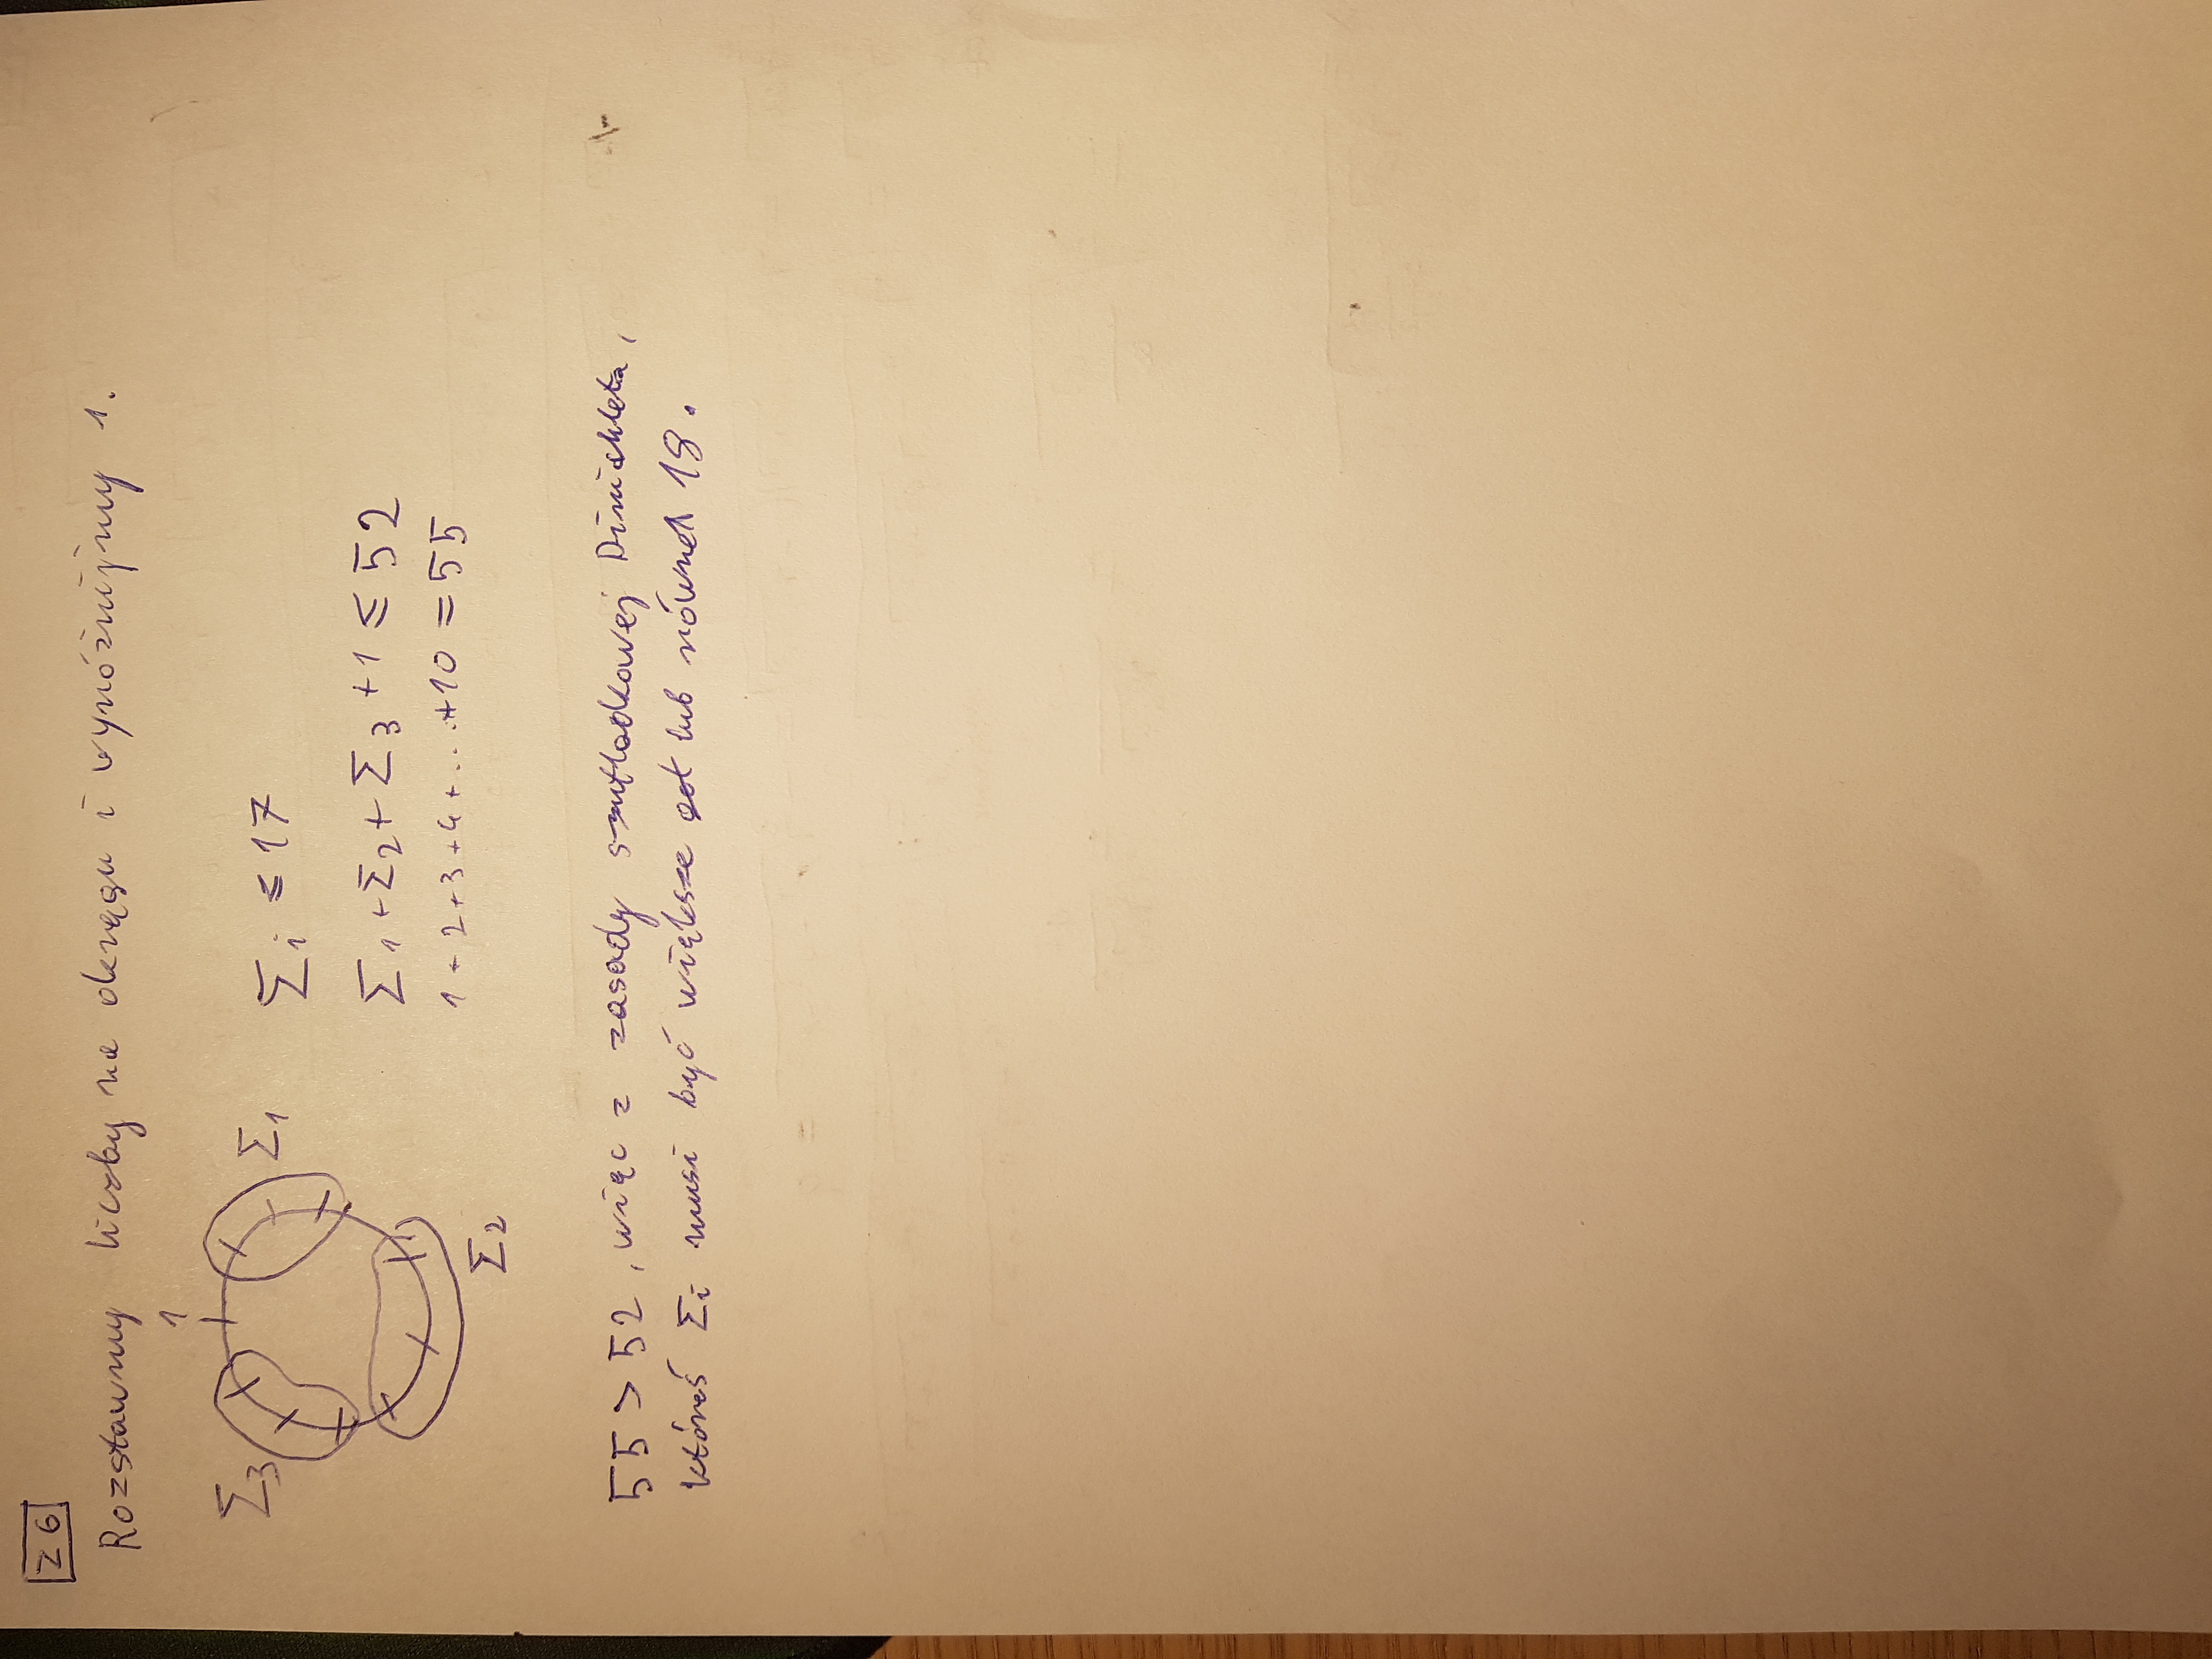 Z 6
Rozstawmy liczby na okręgu i wyróżnijmy 1.
1
Σ3
Σ1
Σi ≤ 17
Σ1 + Σ2 + Σ3 + 1 ≤ 52
1 + 2 + 3 + 4 + ... + 10 = 55
Σ2
55 > 52, więc z zasady szufladkowej Dirichleta,
któreś Σi musi być większe lub równe 18.